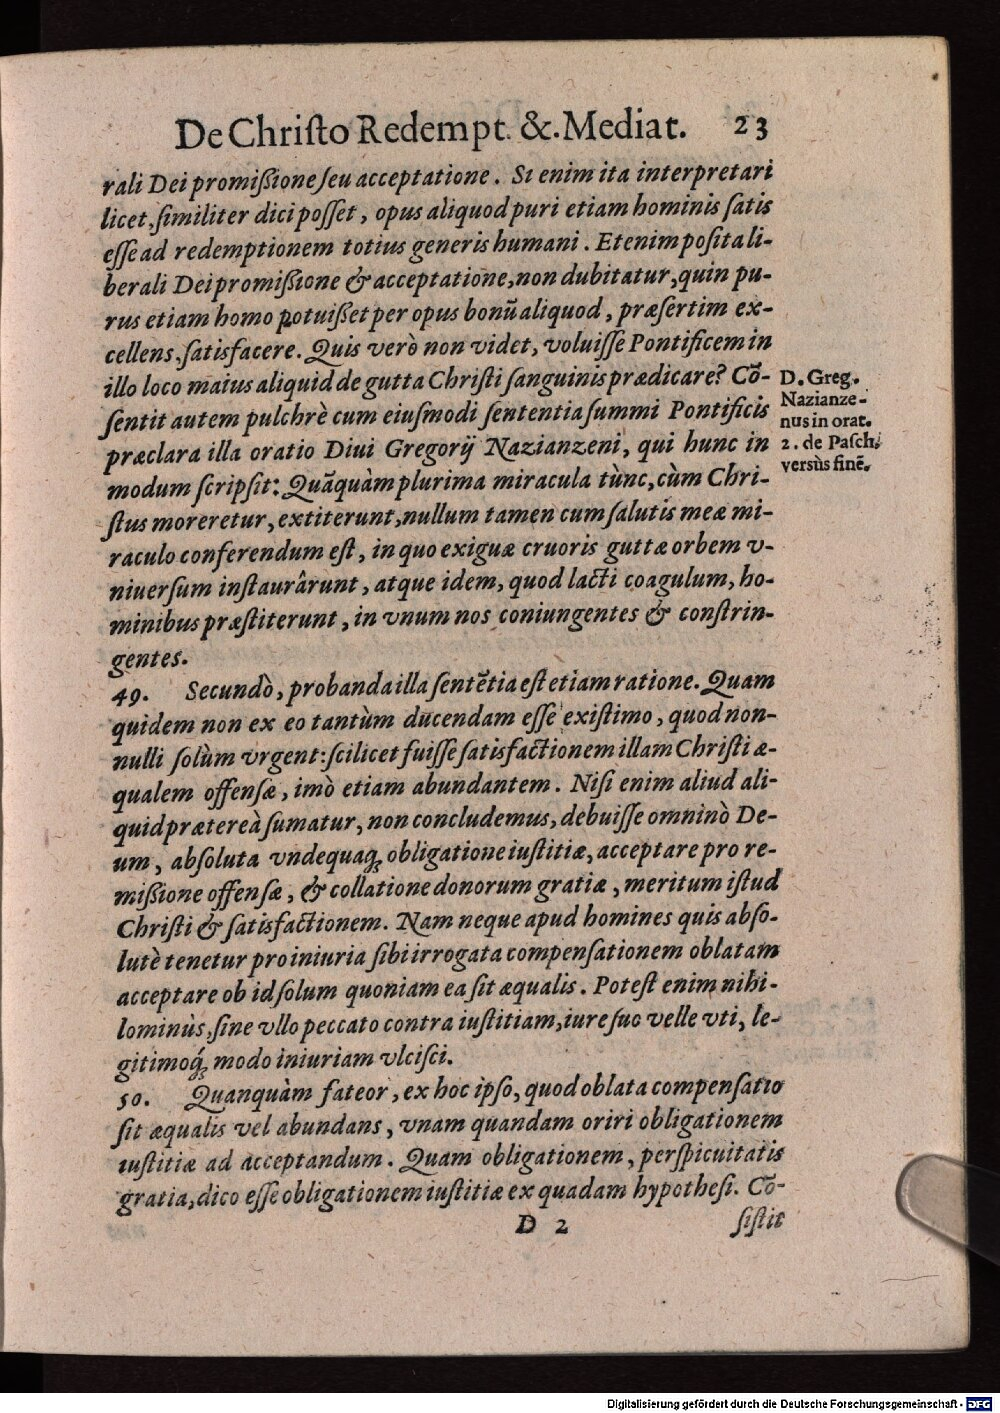 De Chriſto Redempt. &. Mediat. 23
rali Dei promißione ſeu acceptatione. Si enim ita interpretari
licet, ſimiliter dici poſſet, opus aliquod puri etiam hominis ſatis
eſſe ad redemptionem totius generis humani. Etenim poſita li-
berali Dei promißione & acceptatione, non dubitatur, quin pu-
rus etiam homo potuißet per opus bonũ aliquod, præſertim ex-
cellens, ſatisfacere. Quis verò non videt, voluiſſe Pontificem in
illo loco maius aliquid de gutta Chriſti ſanguinis prædicare? Cõ-
ſentit autem pulchrè cum eiuſmodi ſententia ſummi Pontificis
præclara illa oratio Diui Gregorij Nazianzeni, qui hunc in
modum ſcripſit: Quãquàm plurima miracula tùnc, cùm Chri-
ſtus moreretur, extiterunt, nullum tamen cum ſalutis meæ mi-
raculo conferendum eſt, in quo exiguæ cruoris guttæ orbem v-
niuerſum inſtaurârunt, atque idem, quod lacti coagulum, ho-
minibus præſtiterunt, in vnum nos coniungentes & conſtrin-
gentes.
D. Greg.
Nazianze-
nus in orat.
2. de Paſch.
versùs finẽ.
49. Secundò, probanda illa ſentẽtia eſt etiam ratione. Quam
quidem non ex eo tantùm ducendam eſſe exiſtimo, quod non-
nulli ſolùm vrgent: ſcilicet fuiſſe ſatisfactionem illam Chriſti æ-
qualem offenſæ, imò etiam abundantem. Niſi enim aliud ali-
quid prætereà ſumatur, non concludemus, debuiſſe omninò De-
um, abſoluta vndequaq; obligatione iuſtitiæ, acceptare pro re-
mißione offenſæ, & collatione donorum gratiæ, meritum iſtud
Chriſti & ſatisfactionem. Nam neque apud homines quis abſo-
lutè tenetur pro iniuria ſibi irrogata compenſationem oblatam
acceptare ob id ſolum quoniam ea ſit æqualis. Poteſt enim nihi-
lominùs, ſine vllo peccato contra iuſtitiam, iure ſuo velle vti, le-
gitimoq́; modo iniuriam vlciſci.
50. Quanquàm fateor, ex hoc ipſo, quod oblata compenſatio
ſit æqualis vel abundans, vnam quandam oriri obligationem
iuſtitiæ ad acceptandum. Quam obligationem, perſpicuitatis
gratia, dico eſſe obligationem iuſtitiæ ex quadam hypotheſi. Cõ-
D 2 ſiſtit
Digitalisierung gefördert durch die Deutsche Forschungsgemeinschaft - DFG